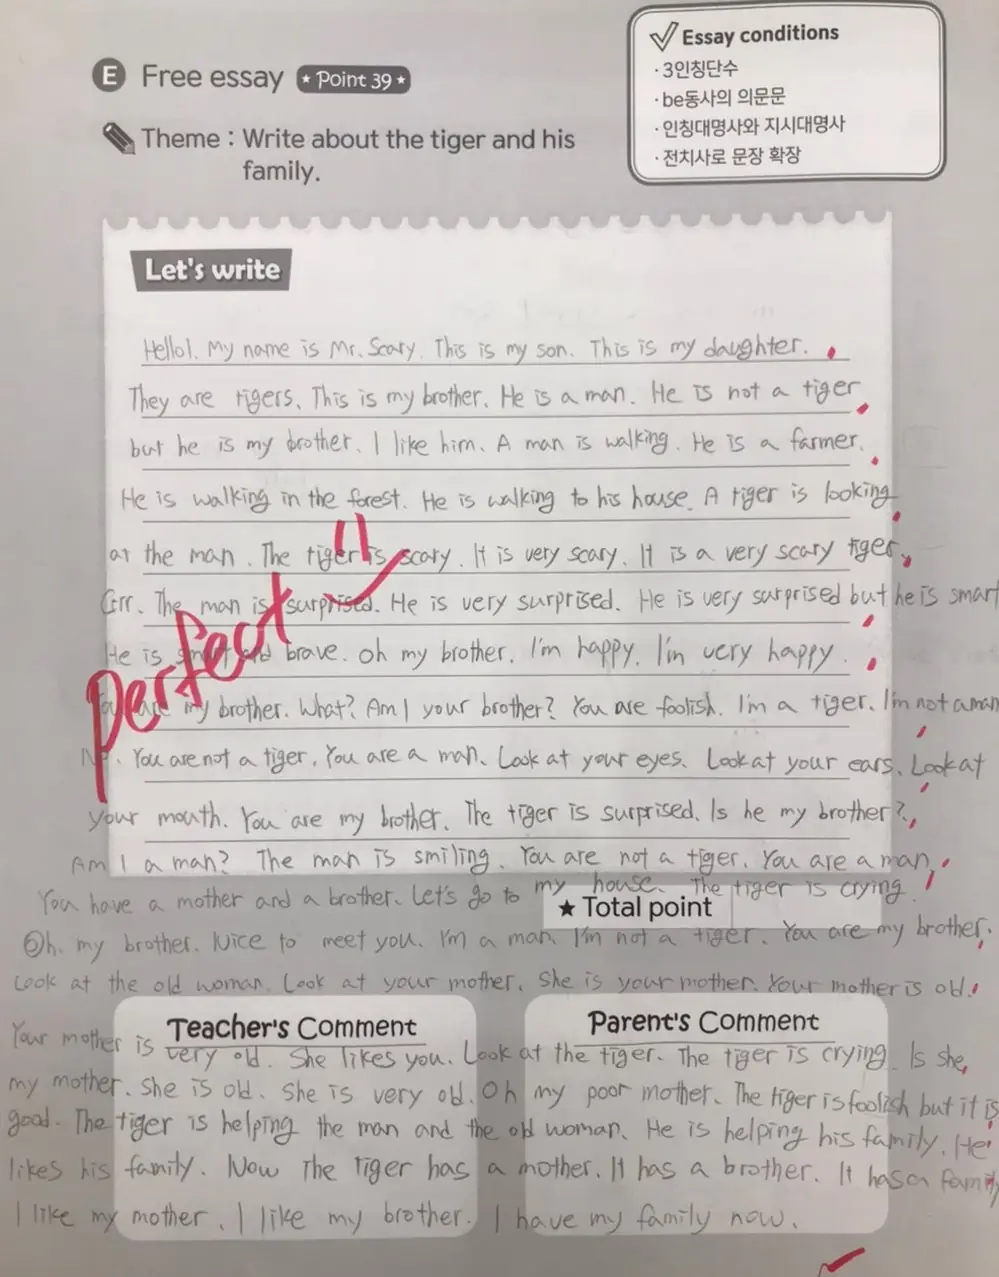 E Free essay ★ Point 39 ★
Theme : Write about the tiger and his
family.
Essay conditions
· 3인칭단수
· be동사의 의문문
· 인칭대명사와 지시대명사
· 전치사로 문장 확장
Let's write
Hello!. My name is Mr. Scary. This is my son. This is my daughter.
They are tigers. This is my brother. He is a man. He is not a tiger
but he is my brother. I like him. A man is walking. He is a farmer.
He is walking in the forest. He is walking to his house. A tiger is looking
at the man. The tiger is scary. It is very scary. It is a very scary tiger.
Grr. The man is surprised. He is very surprised. He is very surprised but he is smart
He is smart and brave. Oh my brother. I'm happy. I'm very happy.
You are my brother. What? Am I your brother? You are foolish. I'm a tiger. I'm not a man
No. You are not a tiger. You are a man. Look at your eyes. Look at your ears. Look at
your mouth. You are my brother. The tiger is surprised. Is he my brother?
Am I a man? The man is smiling. You are not a tiger. You are a man.
You have a mother and a brother. Let's go to my house. The tiger is crying.
★ Total point
Oh. my brother. Nice to meet you. I'm a man. I'm not a tiger. You are my brother.
Look at the old woman. Look at your mother. She is your mother. Your mother is old.
Teacher's Comment
Parent's Comment
Your mother is very old. She likes you. Look at the tiger. The tiger is crying. Is she
my mother. She is old. She is very old. Oh my poor mother. The tiger is foolish but it is
good. The tiger is helping the man and the old woman. He is helping his family. He
likes his family. Now the tiger has a mother. It has a brother. It has a family
I like my mother. I like my brother. I have my family now.
perfect!!